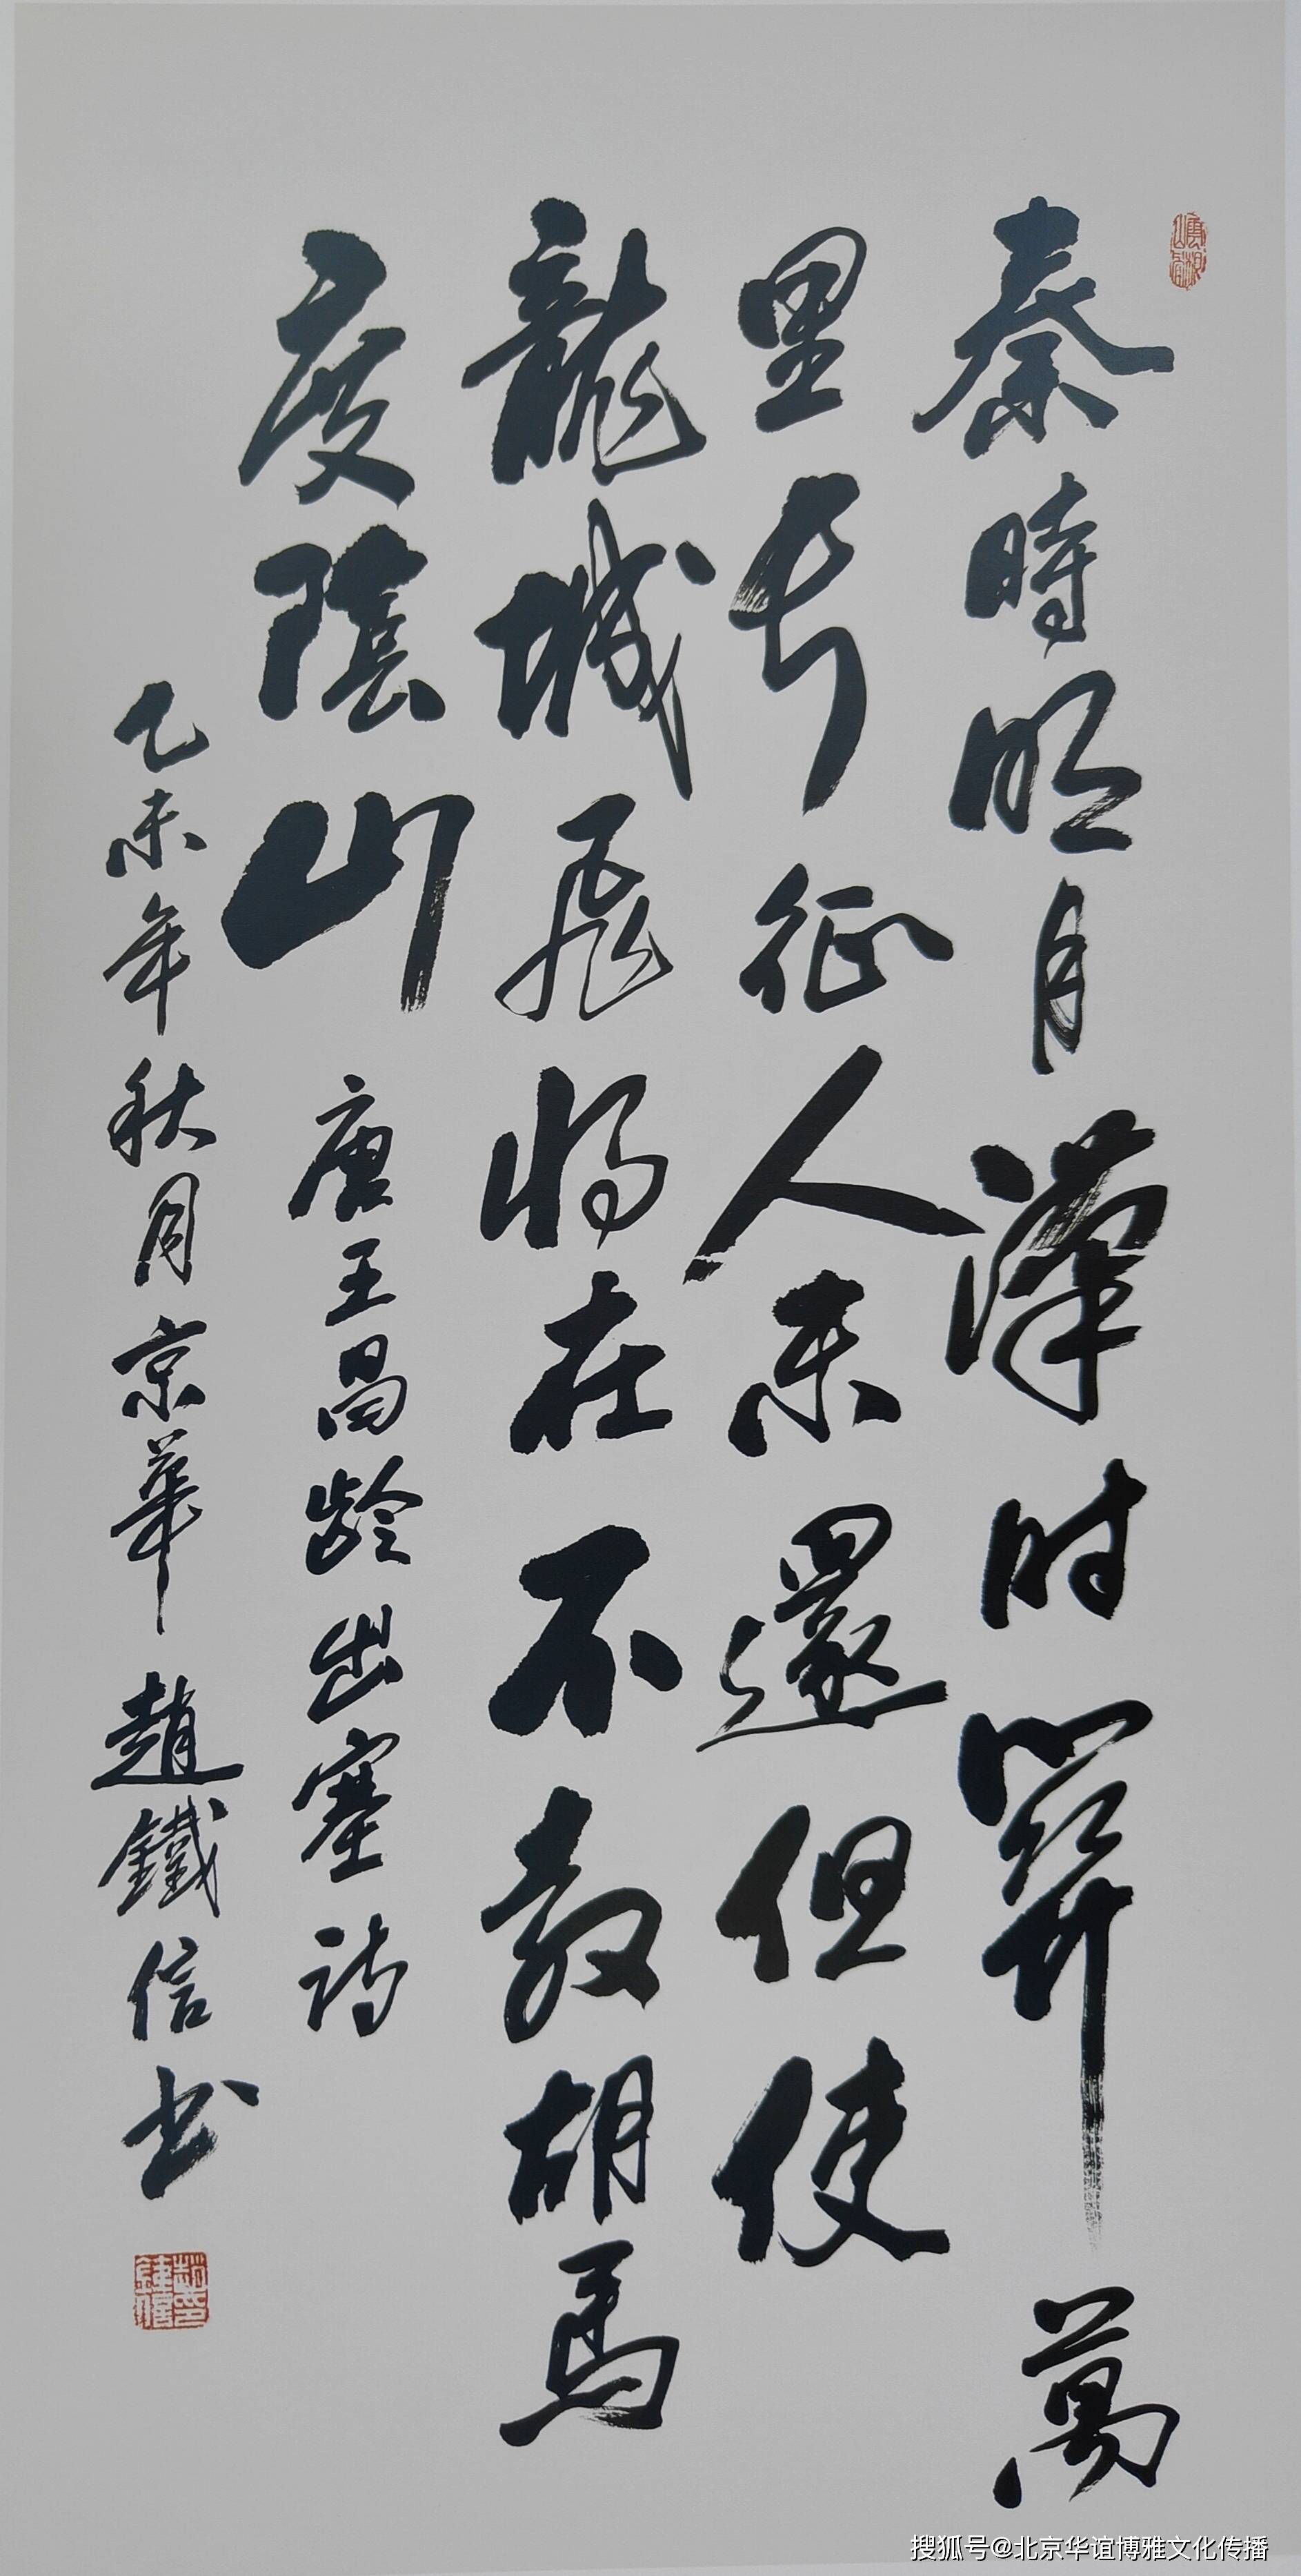 秦時明月漢时關萬
里長征人未還但使
龍城飛將在不教胡馬
度陰山
唐王昌齡出塞詩
乙未年秋月京華趙鐵信书
搜狐号@北京华谊博雅文化传播